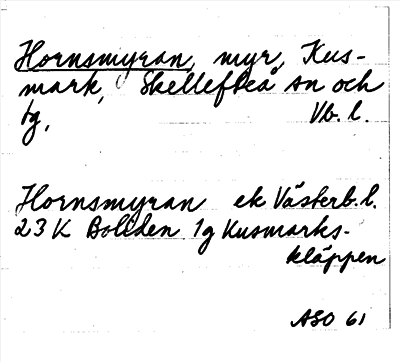 Hornsmyran, myr, Kus-
mark, Skellefteå sn och
tg, Vb. l.
Hornsmyran ek Västerb. l.
23 K Boliden 1g Kusmarks-
kläppen
ASO 61